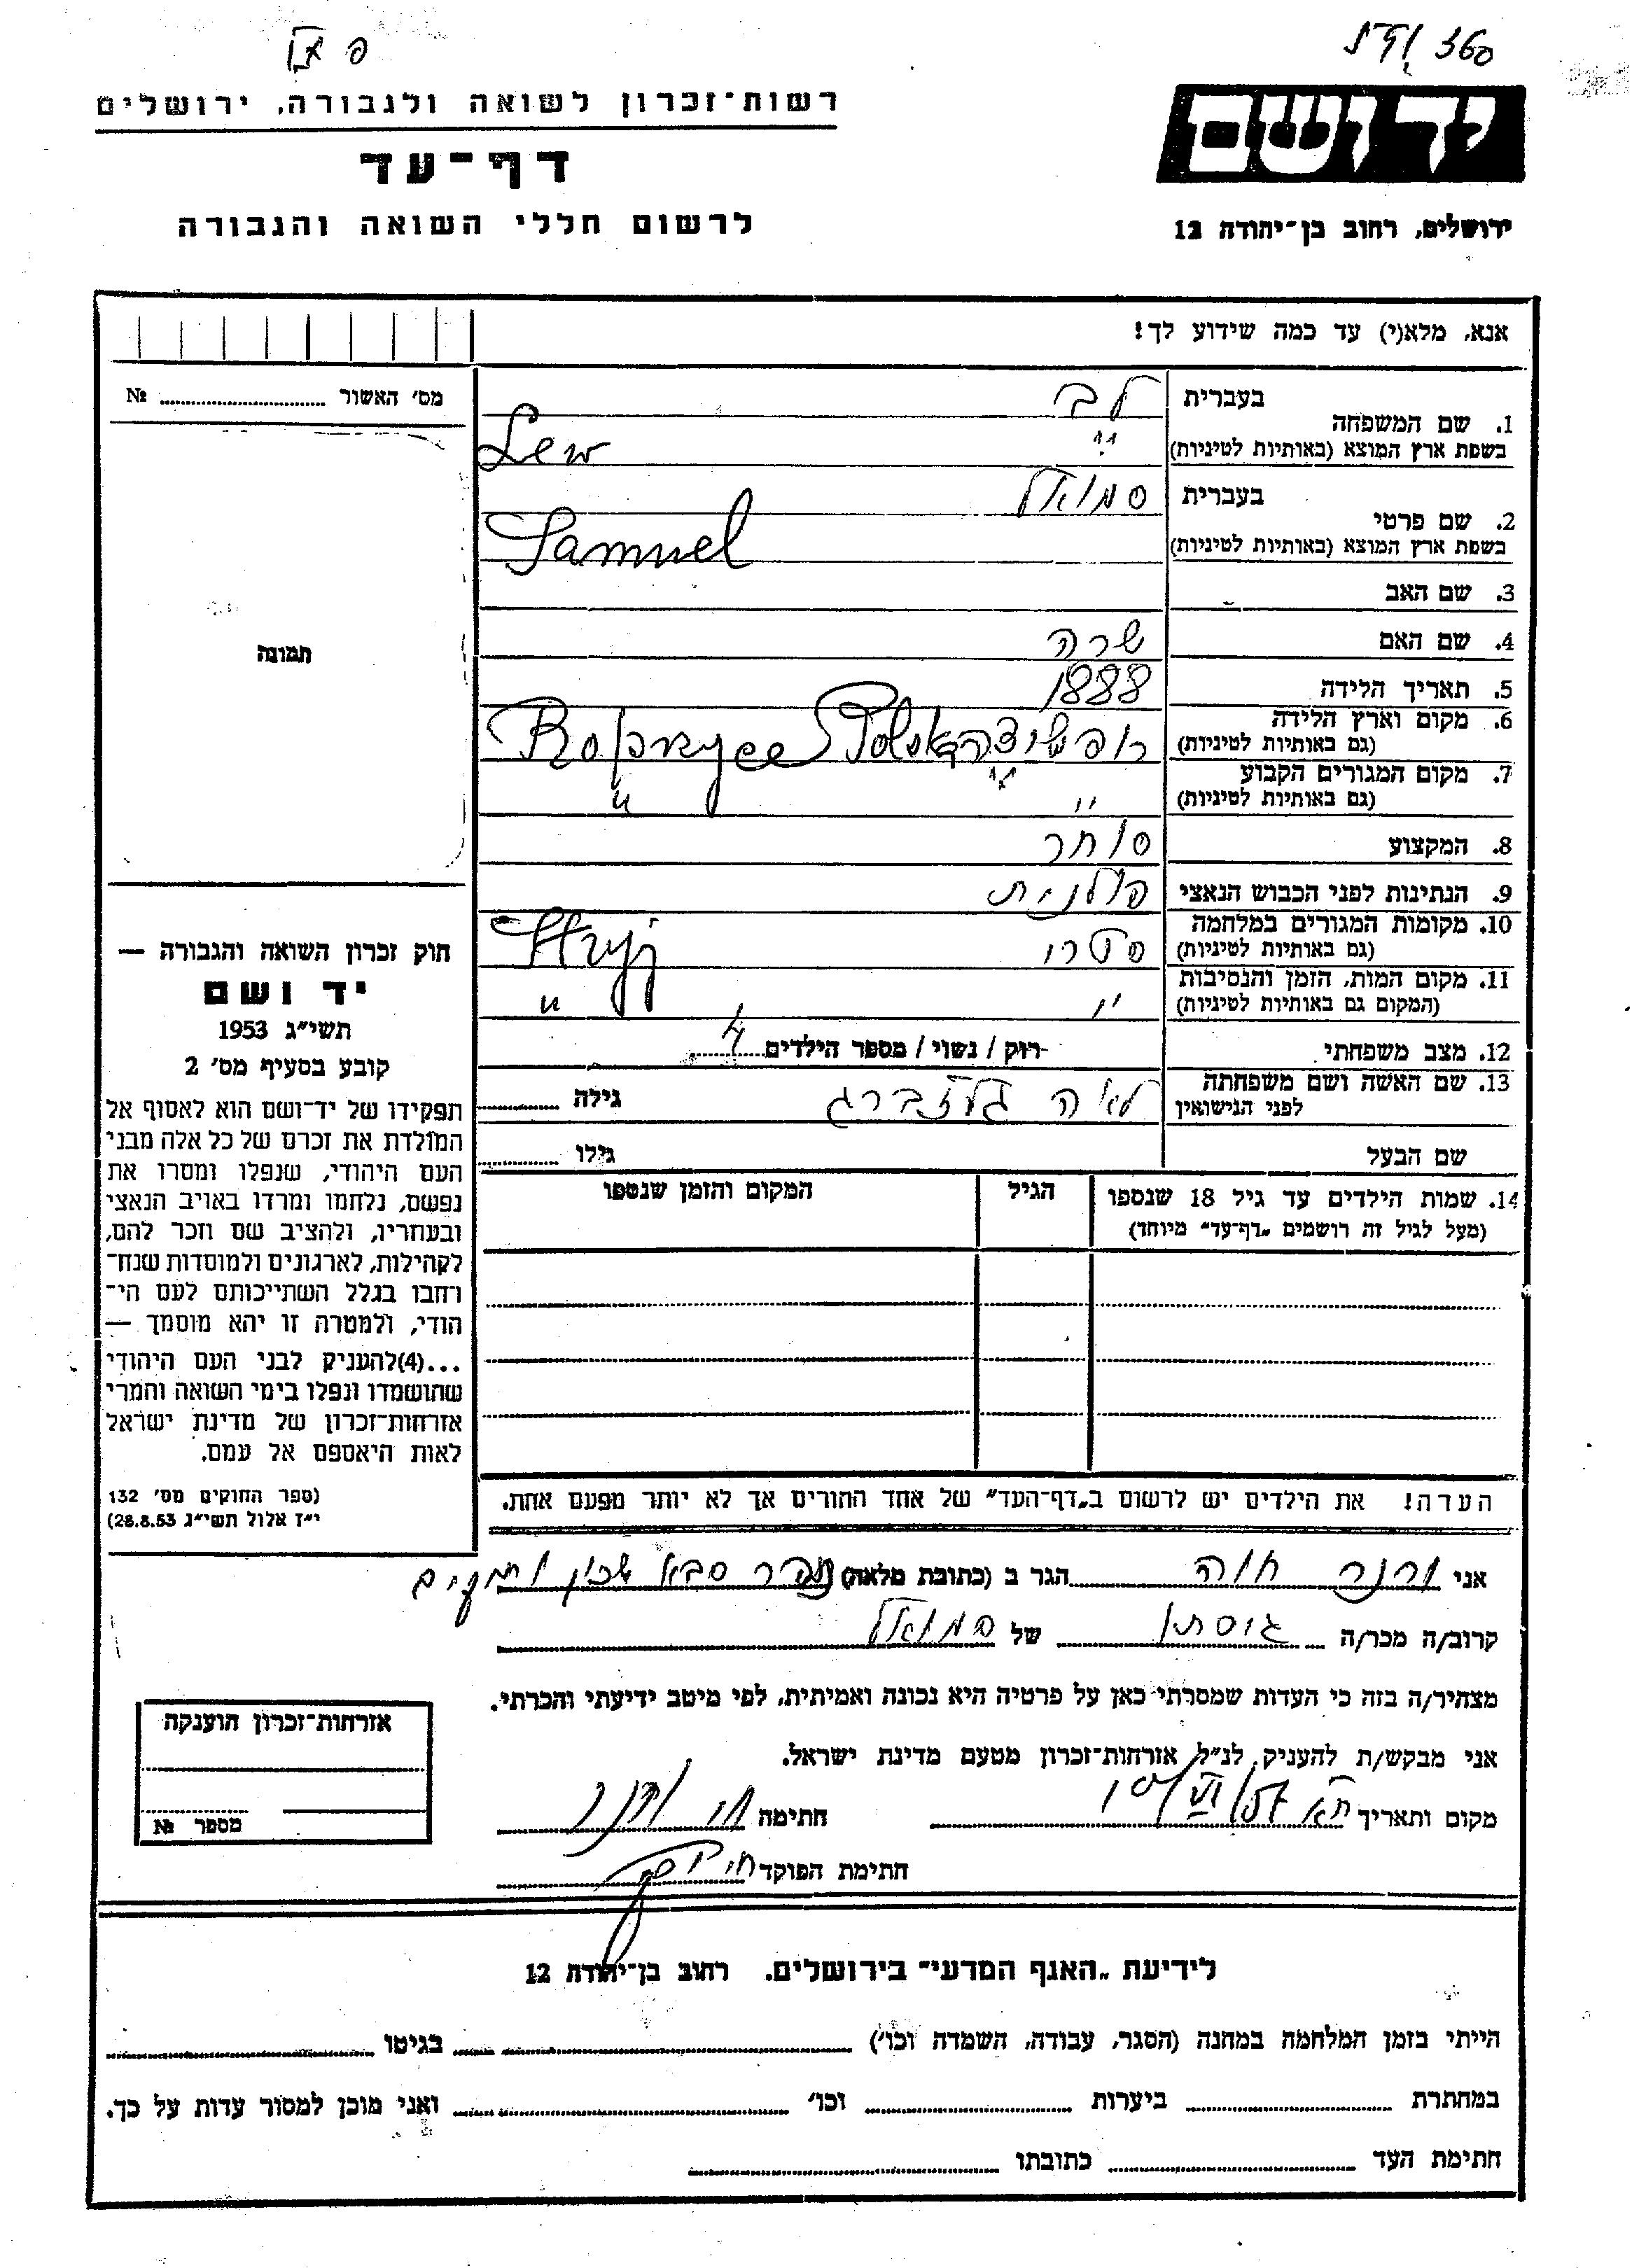 360
רשות־זכרון לשואה ולגבורה, ירושלים
דף־עד
לרשום חללי השואה והגבורה
יד ושם
ירושלים, רחוב בן־יהודה 12
אנא, מלא(י) עד כמה שידוע לך!
מס׳ האשור № 
תמונה
1. שם המשפחה
בעברית לב
בשפת ארץ המוצא (באותיות לטיניות) " Lew
2. שם פרטי
בעברית סמואל
בשפת ארץ המוצא (באותיות לטיניות) Samuel
3. שם האב
4. שם האם שרה
5. תאריך הלידה 1888
6. מקום וארץ הלידה
(גם באותיות לטיניות) רופשיצה Ropczyce Polska
7. מקום המגורים הקבוע
(גם באותיות לטיניות) " "
8. המקצוע סוחר
9. הנתינות לפני הכבוש הנאצי פולנית
10. מקומות המגורים במלחמה
(גם באותיות לטיניות) סטרי Stryj
11. מקום המות, הזמן והנסיבות
(המקום גם באותיות לטיניות) " "
12. מצב משפחתי רוק / נשוי / מספר הילדים 4
13. שם האשה ושם משפחתה
לפני הנישואין לאה גולדברג גילה
שם הבעל גילו
14. שמות הילדים עד גיל 18 שנספו הגיל המקום והזמן שנספו
(מעל לגיל זה רושמים „דף־עד״ מיוחד)
הערה! את הילדים יש לרשום ב„דף־העד״ של אחד ההורים אך לא יותר מפעם אחת.
חוק זכרון השואה והגבורה —
יד ושם
תשי״ג 1953
קובע בסעיף מס׳ 2
תפקידו של יד־ושם הוא לאסוף אל
המולדת את זכרם של כל אלה מבני
העם היהודי, שנפלו ומסרו את
נפשם, נלחמו ומרדו באויב הנאצי
ובעוזריו, ולהציב שם וזכר להם,
לקהילות, לארגונים ולמוסדות שנח־
רחבו בגלל השתייכותם לעם הי־
הודי, ולמטרה זו יהא מוסמך —
...(4)להעניק לבני העם היהודי
שהושמדו ונפלו בימי השואה והמרי
אזרחות־זכרון של מדינת ישראל
לאות היאספם אל עמם.
(ספר החוקים מס׳ 132
י״ז אלול תשי״ג 28.8.53)
אני ורנר חוה הגר ב (כתובת מלאה) כפר סבא שכון ותיקים
קרוב/ה מכר/ה גיסתו של סמואל
מצהיר/ה בזה כי העדות שמסרתי כאן על פרטיה היא נכונה ואמיתית, לפי מיטב ידיעתי והכרתי.
אני מבקש/ת להעניק לנ״ל אזרחות־זכרון מטעם מדינת ישראל.
מקום ותאריך חתימה
חתימת הפוקד
אזרחות־זכרון הוענקה
מספר №
לידיעת „האגף המדעי״ בירושלים. רחוב בן־יהודה 12
הייתי בזמן המלחמה במחנה (הסגר, עבודה, השמדה וכו׳) בגיטו
במחתרת ביערות וכו׳ ואני מוכן למסור עדות על כך.
חתימת העד כתובתו